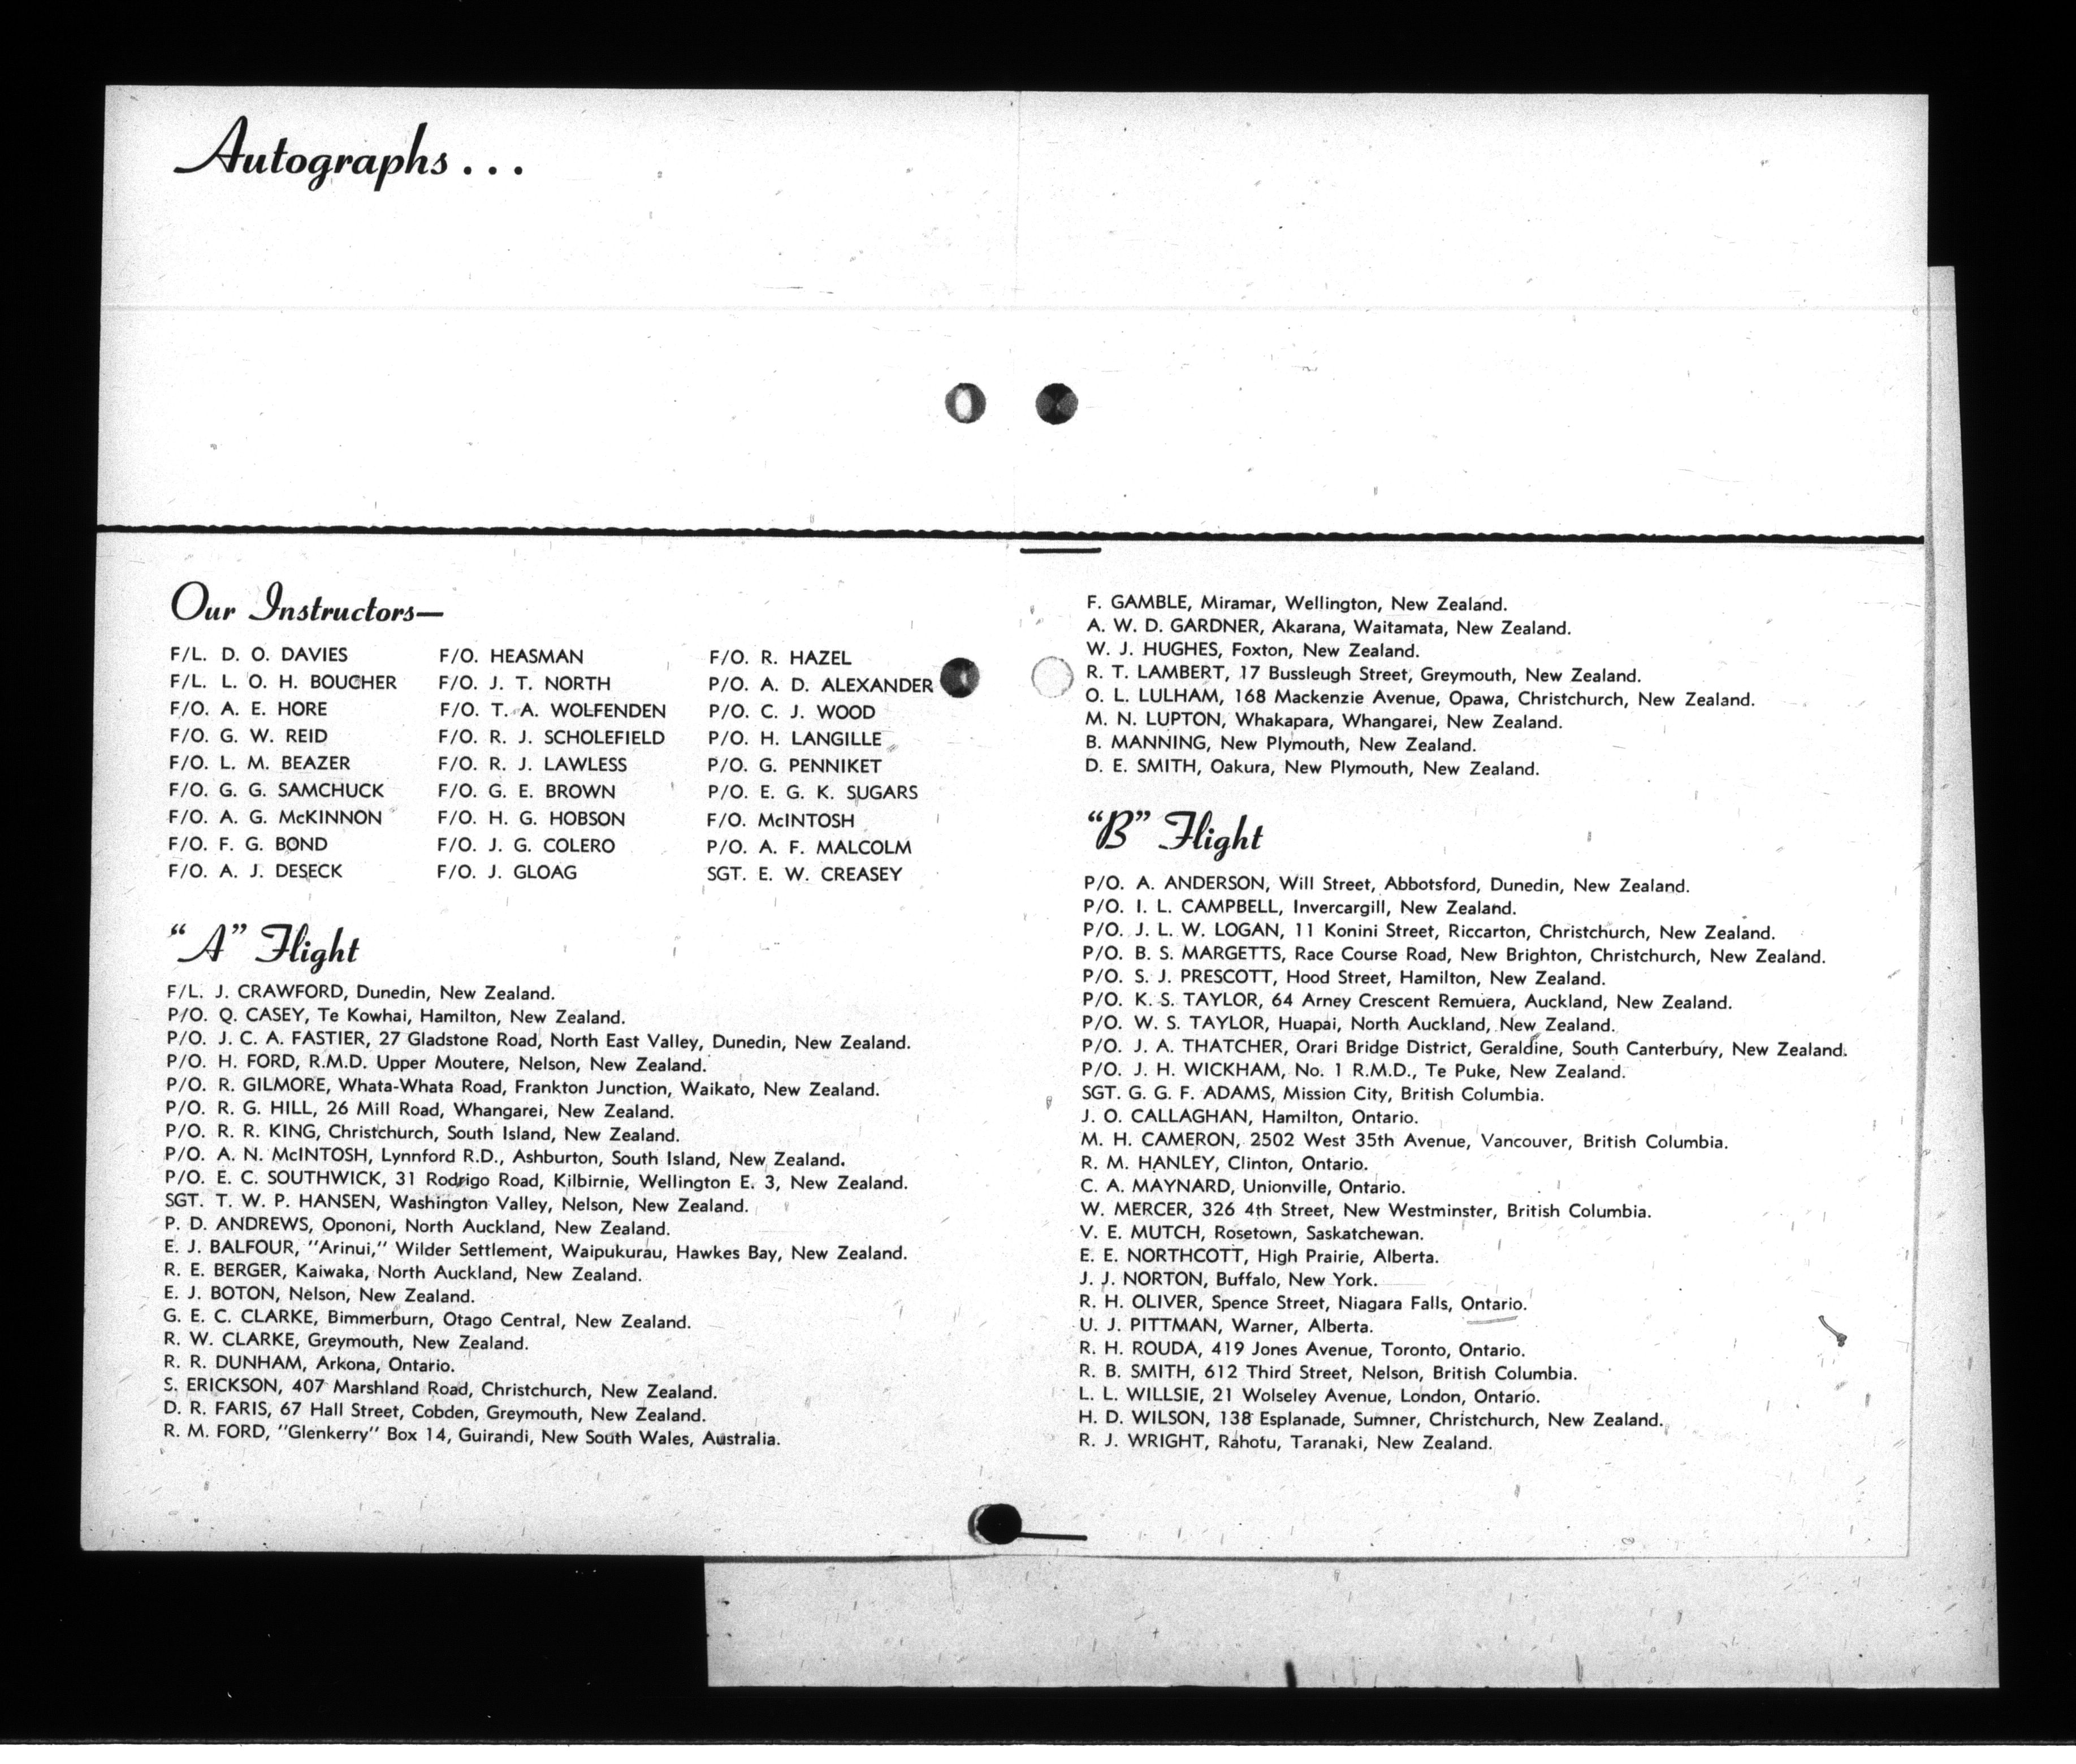 Autographs . . .
Our Instructors—
F/L. D. O. DAVIES
F/L. L. O. H. BOUCHER
F/O. A. E. HORE
F/O. G. W. REID
F/O. L. M. BEAZER
F/O. G. G. SAMCHUCK
F/O. A. G. McKINNON
F/O. F. G. BOND
F/O. A. J. DESECK
F/O. HEASMAN
F/O. J. T. NORTH
F/O. T. A. WOLFENDEN
F/O. R. J. SCHOLEFIELD
F/O. R. J. LAWLESS
F/O. G. E. BROWN
F/O. H. G. HOBSON
F/O. J. G. COLERO
F/O. J. GLOAG
F/O. R. HAZEL
P/O. A. D. ALEXANDER
P/O. C. J. WOOD
P/O. H. LANGILLE
P/O. G. PENNIKET
P/O. E. G. K. SUGARS
F/O. McINTOSH
P/O. A. F. MALCOLM
SGT. E. W. CREASEY
"A" Flight
F/L. J. CRAWFORD, Dunedin, New Zealand.
P/O. Q. CASEY, Te Kowhai, Hamilton, New Zealand.
P/O. J. C. A. FASTIER, 27 Gladstone Road, North East Valley, Dunedin, New Zealand.
P/O. H. FORD, R.M.D. Upper Moutere, Nelson, New Zealand.
P/O. R. GILMORE, Whata-Whata Road, Frankton Junction, Waikato, New Zealand.
P/O. R. G. HILL, 26 Mill Road, Whangarei, New Zealand.
P/O. R. R. KING, Christchurch, South Island, New Zealand.
P/O. A. N. McINTOSH, Lynnford R.D., Ashburton, South Island, New Zealand.
P/O. E. C. SOUTHWICK, 31 Rodrigo Road, Kilbirnie, Wellington E. 3, New Zealand.
SGT. T. W. P. HANSEN, Washington Valley, Nelson, New Zealand.
P. D. ANDREWS, Opononi, North Auckland, New Zealand.
E. J. BALFOUR, "Arinui," Wilder Settlement, Waipukurau, Hawkes Bay, New Zealand.
R. E. BERGER, Kaiwaka, North Auckland, New Zealand.
E. J. BOTON, Nelson, New Zealand.
G. E. C. CLARKE, Bimmerburn, Otago Central, New Zealand.
R. W. CLARKE, Greymouth, New Zealand.
R. R. DUNHAM, Arkona, Ontario.
S. ERICKSON, 407 Marshland Road, Christchurch, New Zealand.
D. R. FARIS, 67 Hall Street, Cobden, Greymouth, New Zealand.
R. M. FORD, "Glenkerry" Box 14, Guirandi, New South Wales, Australia.
F. GAMBLE, Miramar, Wellington, New Zealand.
A. W. D. GARDNER, Akarana, Waitamata, New Zealand.
W. J. HUGHES, Foxton, New Zealand.
R. T. LAMBERT, 17 Bussleugh Street, Greymouth, New Zealand.
O. L. LULHAM, 168 Mackenzie Avenue, Opawa, Christchurch, New Zealand.
M. N. LUPTON, Whakapara, Whangarei, New Zealand.
B. MANNING, New Plymouth, New Zealand.
D. E. SMITH, Oakura, New Plymouth, New Zealand.
"B" Flight
P/O. A. ANDERSON, Will Street, Abbotsford, Dunedin, New Zealand.
P/O. I. L. CAMPBELL, Invercargill, New Zealand.
P/O. J. L. W. LOGAN, 11 Konini Street, Riccarton, Christchurch, New Zealand.
P/O. B. S. MARGETTS, Race Course Road, New Brighton, Christchurch, New Zealand.
P/O. S. J. PRESCOTT, Hood Street, Hamilton, New Zealand.
P/O. K. S. TAYLOR, 64 Arney Crescent Remuera, Auckland, New Zealand.
P/O. W. S. TAYLOR, Huapai, North Auckland, New Zealand.
P/O. J. A. THATCHER, Orari Bridge District, Geraldine, South Canterbury, New Zealand.
P/O. J. H. WICKHAM, No. 1 R.M.D., Te Puke, New Zealand.
SGT. G. G. F. ADAMS, Mission City, British Columbia.
J. O. CALLAGHAN, Hamilton, Ontario.
M. H. CAMERON, 2502 West 35th Avenue, Vancouver, British Columbia.
R. M. HANLEY, Clinton, Ontario.
C. A. MAYNARD, Unionville, Ontario.
W. MERCER, 326 4th Street, New Westminster, British Columbia.
V. E. MUTCH, Rosetown, Saskatchewan.
E. E. NORTHCOTT, High Prairie, Alberta.
J. J. NORTON, Buffalo, New York.
R. H. OLIVER, Spence Street, Niagara Falls, Ontario.
U. J. PITTMAN, Warner, Alberta.
R. H. ROUDA, 419 Jones Avenue, Toronto, Ontario.
R. B. SMITH, 612 Third Street, Nelson, British Columbia.
L. L. WILLSIE, 21 Wolseley Avenue, London, Ontario.
H. D. WILSON, 138 Esplanade, Sumner, Christchurch, New Zealand.
R. J. WRIGHT, Rahotu, Taranaki, New Zealand.